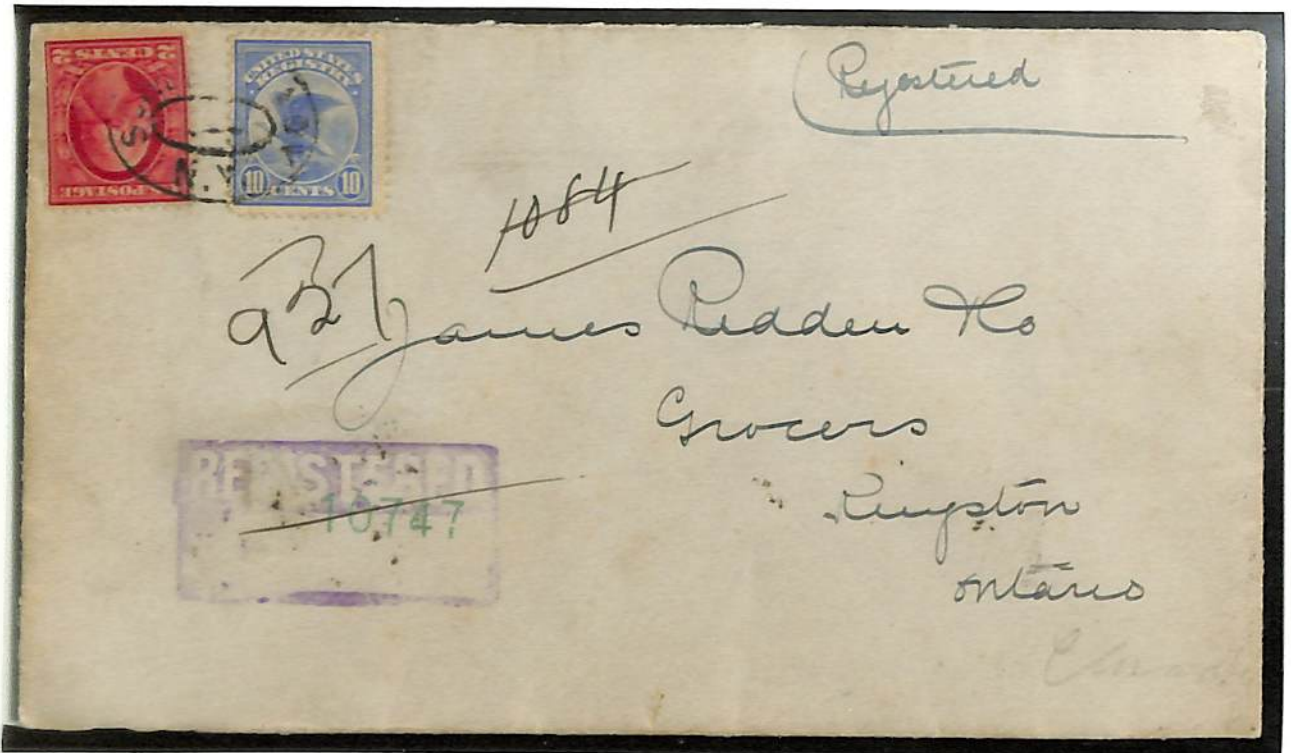 2 CENTS 2
U.S. POSTAGE
UNITED STATES
REGISTRY
10 CENTS 10
N.Y.
Registered
1084
937
James Redden & Co
Grocers
Kingston
Ontario
REGISTERED
10747